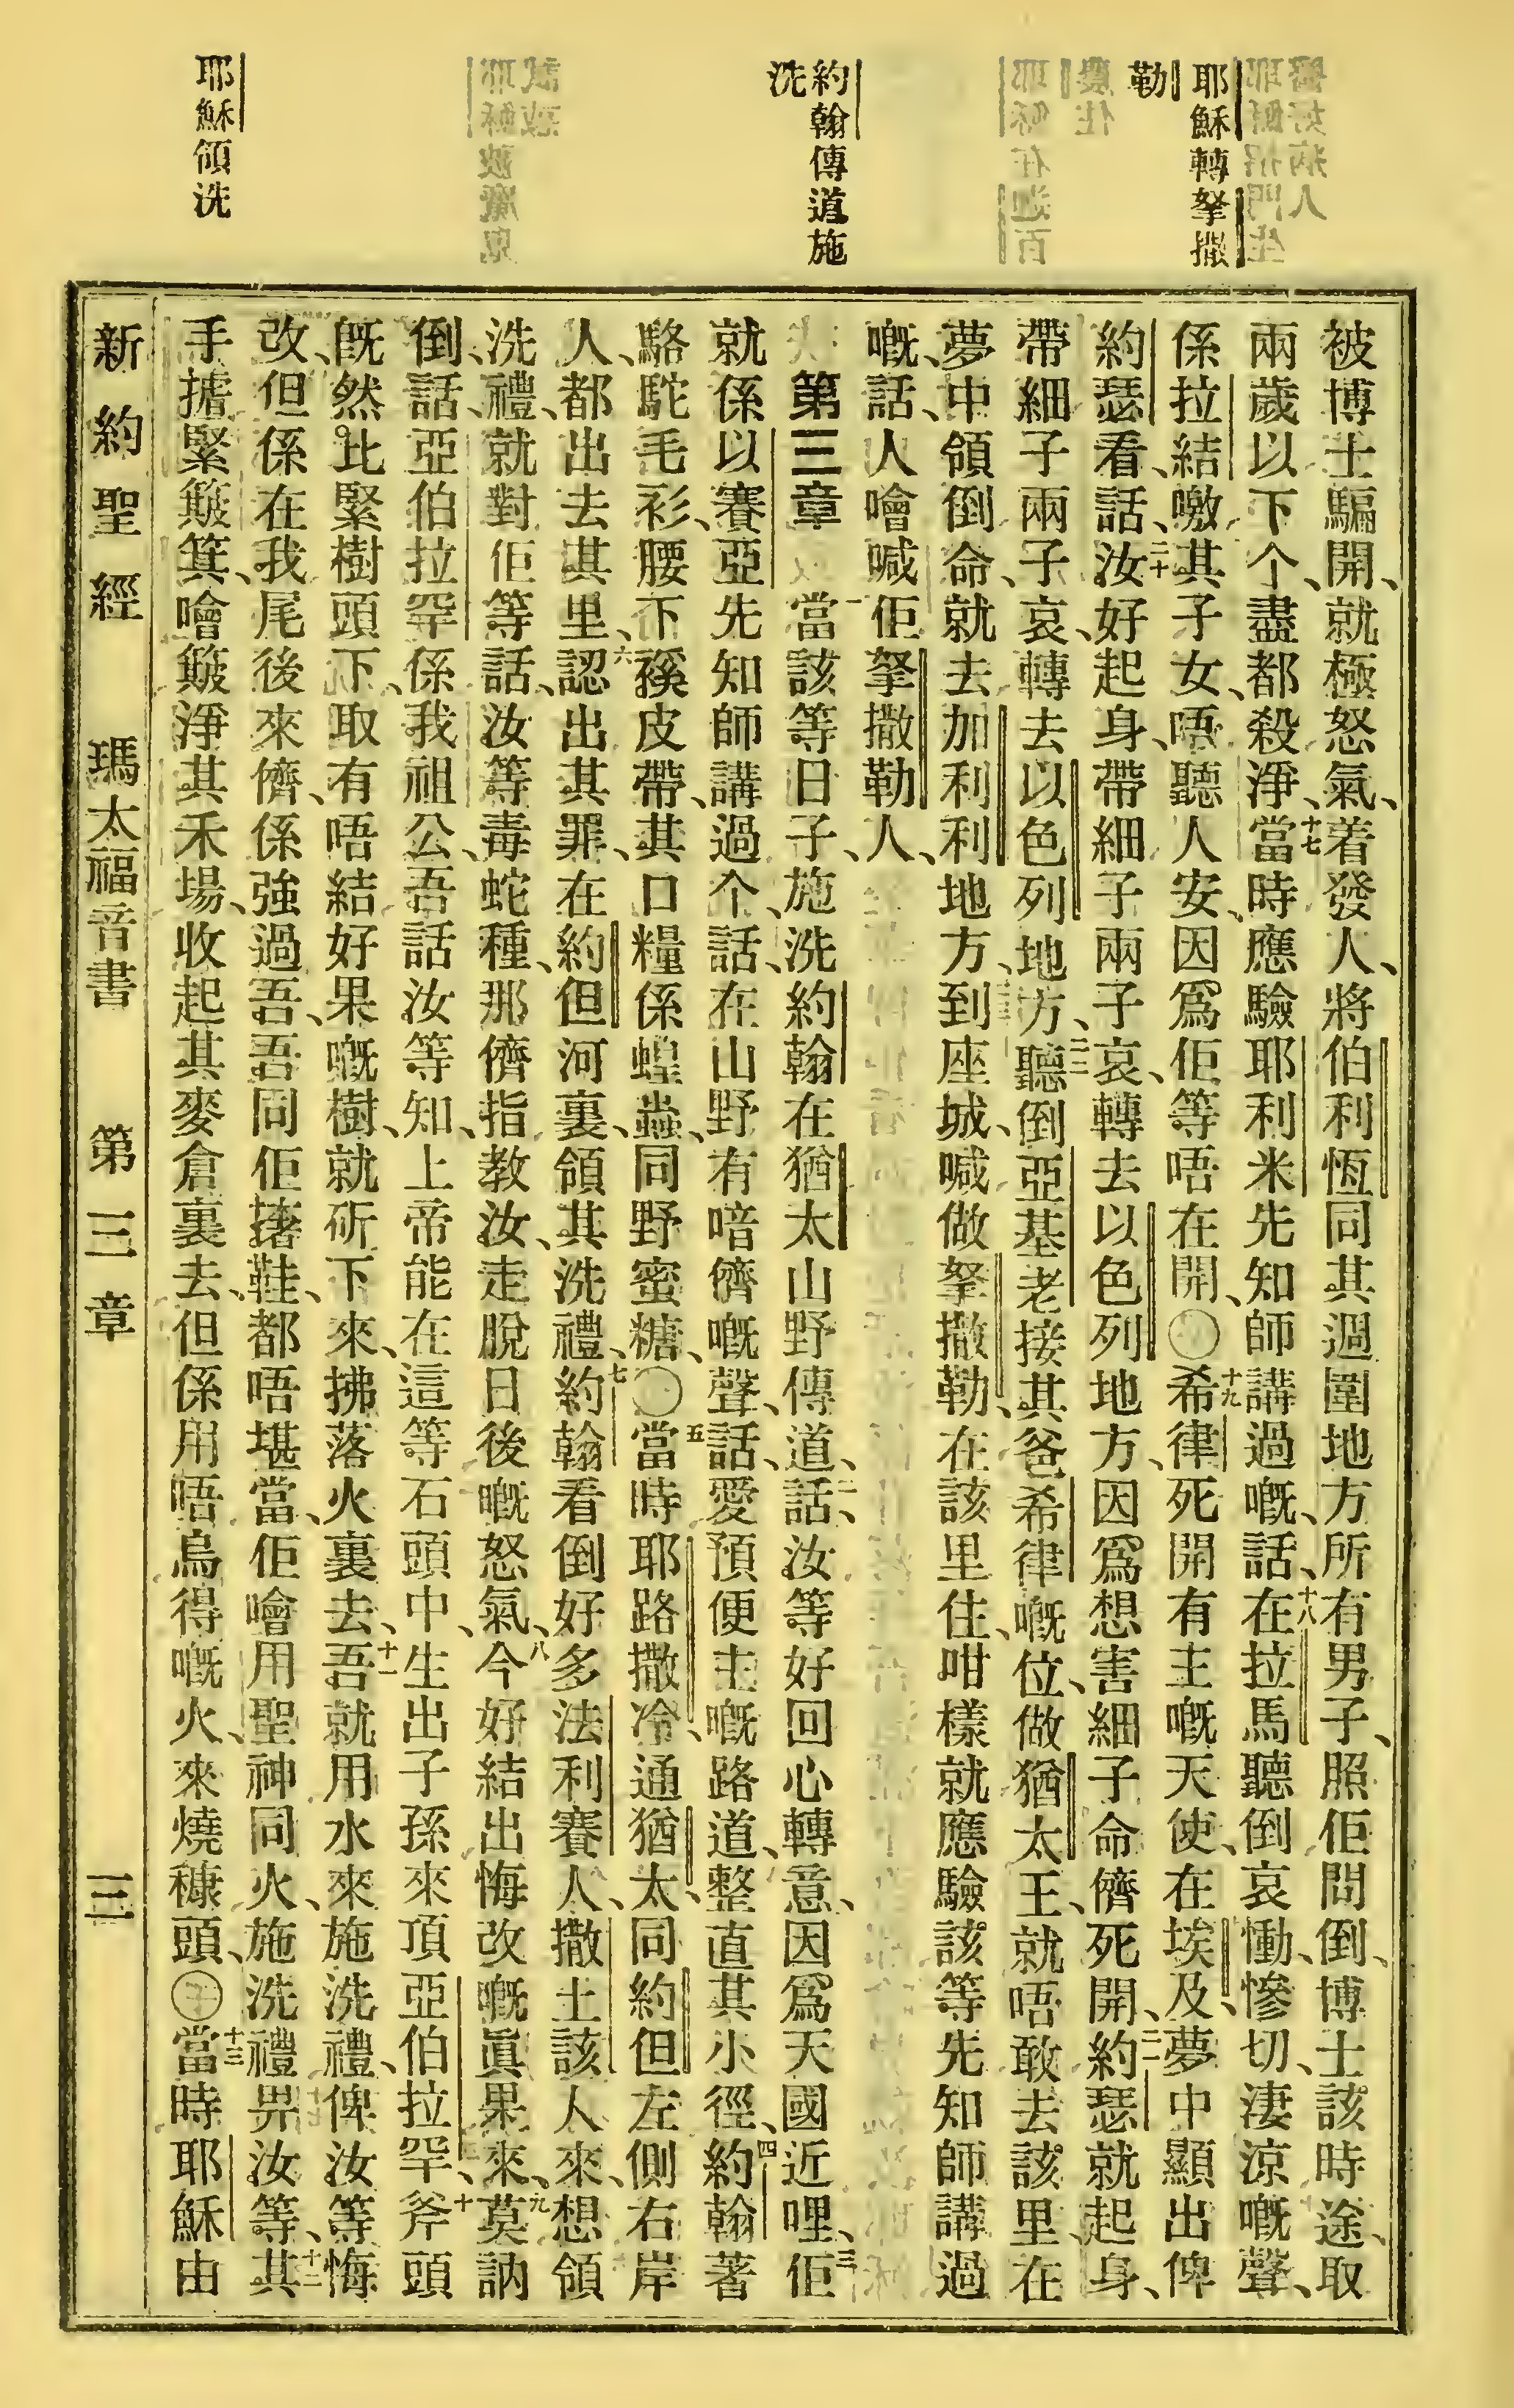 耶穌轉拏撒
勒
約翰傳道施
洗
耶穌領洗
被博士騙開、就極怒氣、着發人、將伯利恆同其週圍地方所有男子、照佢問倒、博士該時途、取
兩歲以下个、盡都殺淨、十七當時應驗耶利米先知師講過嘅、話、十八在拉馬聽倒哀慟、慘切、淒涼嘅聲、
係拉結噭其子女、唔聽人安、因爲佢等唔在開、〇十九希律死開有主嘅天使、在埃及、夢中顯出俾
約瑟看、話、二十汝好起身、帶細子兩子哀、轉去以色列地方、因爲想害細子命儕死開、二一約瑟就起身、
帶細子兩子哀、轉去以色列地方、二二聽倒亞基老接其爸希律嘅位、做猶太王、就唔敢去該里、在
夢中領倒命、就去加利利地方、二三到座城、喊做拏撒勒、在該里住、咁樣就應驗該等先知師講過
嘅、話、人噲喊佢拏撒勒人、
第三章 一當該等日子、施洗約翰在猶太山野傳道、二話、汝等好回心轉意、因爲天國近哩、三佢
就係以賽亞先知師講過个、話、在山野有喑儕嘅聲、話、愛預便主嘅路道、整直其小徑、四約翰著
駱駝毛衫、腰下𧜵皮帶、其口糧係蝗蟲、同野蜜糖、〇五當時耶路撒冷、通猶太、同約但左側右岸
人、都出去其里、六認出其罪、在約但河裏、領其洗禮、七約翰看倒好多法利賽人、撒土該人來、想領
洗禮、就對佢等話、汝等毒蛇種、那儕指教汝、走脫日後嘅怒氣、八今好結出悔改嘅眞果來、九莫訥
倒、話、亞伯拉罕係我祖公、吾話汝等知、上帝能在這等石頭中、生出子孫來頂亞伯拉罕、十斧頭
旣然比緊樹頭下、取有唔結好果嘅樹、就斫下來、拂落火裏去、十一吾就用水來施洗禮、俾汝等悔
改、但係在我尾後來儕、係強過吾、吾同佢㩭鞋、都唔堪當、佢噲用聖神同火、施洗禮畀汝等、十二其
手搪緊簸箕、噲簸淨其禾場、收起其麥倉裏去、但係用唔烏得嘅火、來燒糠頭、〇十三當時耶穌由
新約聖經 瑪太福音書 第三章 三